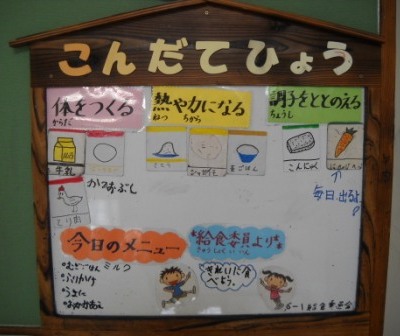 こんだてひょう
体をつくる
からだ
熱や力になる
ねつ ちから
調子をととのえる
ちょうし
牛乳
とり肉
かつおぶし
麦ごはん
こんにゃく
毎日出るよ
今日のメニュー
給食委員より
きゅうしょくいいん
むぎごはん ミルク
ふりかけ
うまに
おかかあえ
きれいに食
べよう。